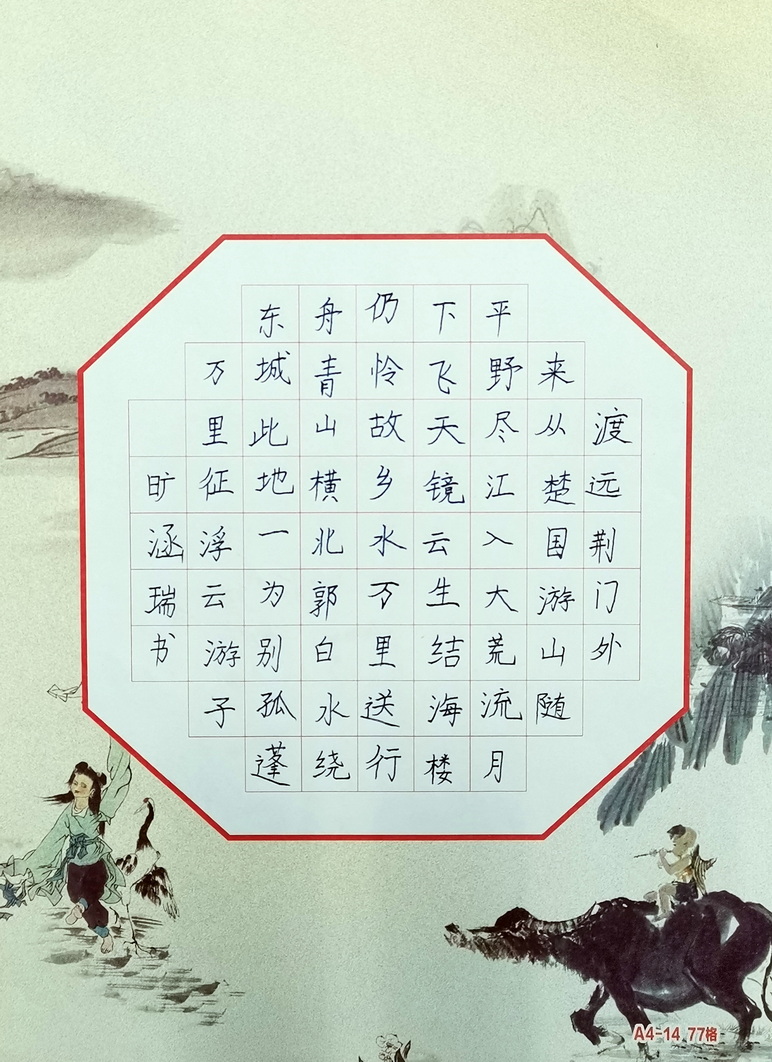 渡远荆门外
来从楚国游山随
平野尽江入大荒流月
下飞天镜云生结海楼
仍怜故乡水万里送行
舟青山横北郭白水绕
东城此地一为别孤蓬
万里征浮云游子
旷涵瑞书
A4-14 77格